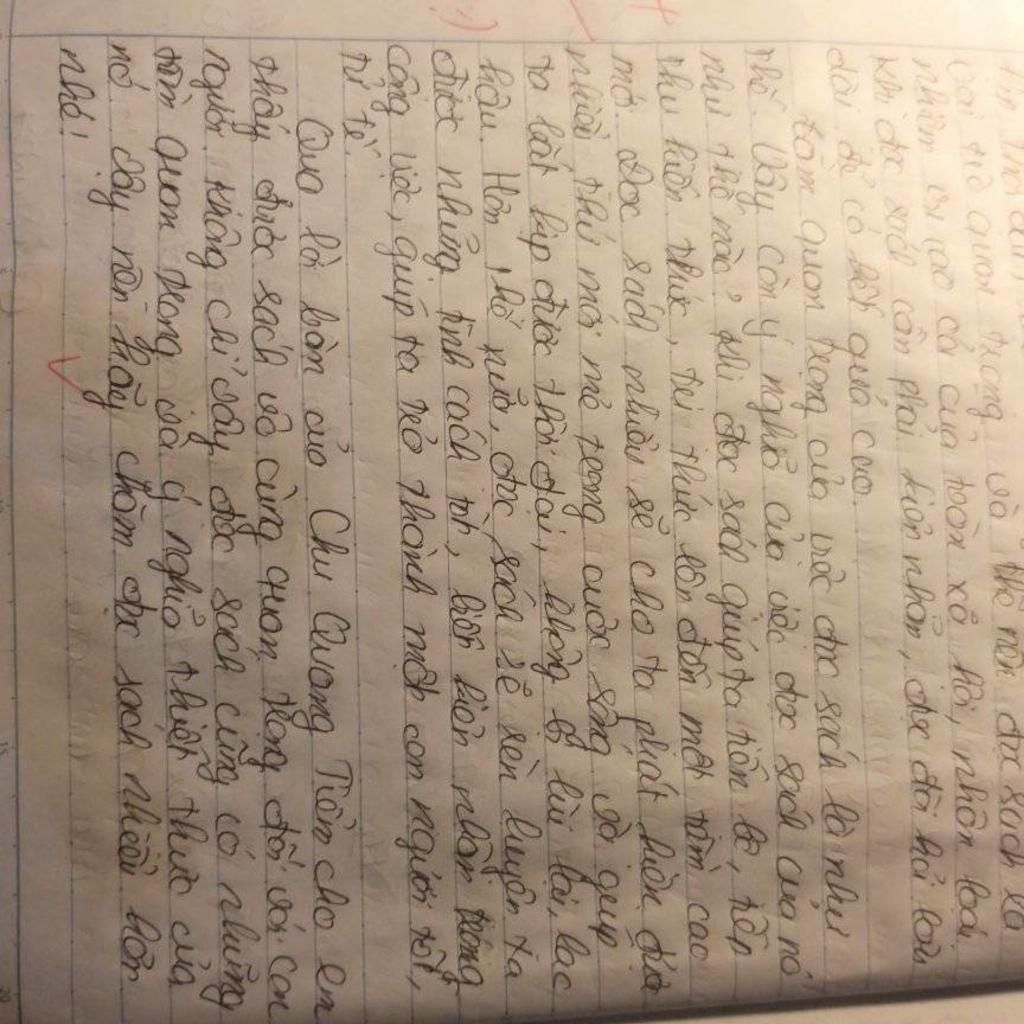 vai trò quan trọng và thế nên đọc sách là
nhiệm vụ cao cả của toàn xã hội, nhân loại
khi đọc sách cần phải kiên nhẫn, đọc đòi hỏi lâu
dài để có kết quả cao.
Tầm quan trọng của việc đọc sách là như
thế. Vậy còn ý nghĩa của việc đọc sách của nó
như thế nào, khi đọc sách giúp ta tiến bộ, tiếp
thu kiến thức, tri thức lên đến một tầm cao
mới. Đọc sách nhiều sẽ cho ta phát hiện được
nhiều thứ mới mẻ trong cuộc sống và giúp
ta bắt kịp được thời đại, không bị lùi lại, lạc
hậu. Hơn thế nữa, đọc sách sẽ rèn luyện ta
được những tính cách tốt, biết kiên nhẫn trong
công việc, giúp ta trở thành một con người tốt,
tử tế.
Qua lời bàn của Chu Quang Tiềm cho em
thấy được sách vô cùng quan trọng đối với con
người không chỉ vậy, đọc sách cũng có những
tầm quan trọng và ý nghĩa thiết thực của
nó vậy nên hãy chăm đọc sách nhiều hơn
nhé!